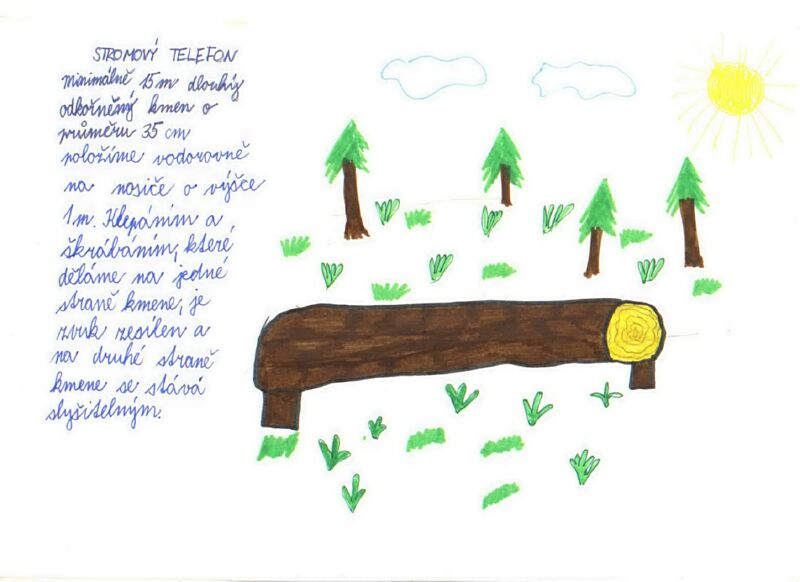 STROMOVÝ TELEFON
Minimálně 15 m dlouhý
odkorněný kmen o
průměru 35 cm
položíme vodorovně
na nosiče o výšce
1 m. Klepáním a
škrábáním, které
děláme na jedné
straně kmene, je
zvuk zesílen a
na druhé straně
kmene se stává
slyšitelným.